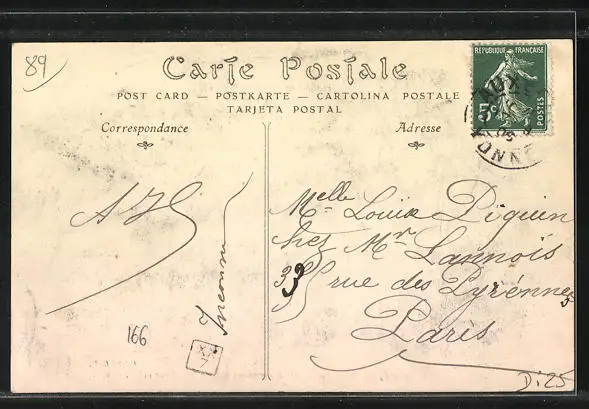 89
Carte Postale
POST CARD — POSTKARTE — CARTOLINA POSTALE
TARJETA POSTAL
Correspondance
Adresse
REPUBLIQUE FRANÇAISE
5c
POSTES
YONNE
Melle Louise Piquin
chez Mr Lannois
33 rue des Pyrénnées
Paris
Inconnu
166
XX
7
D. 25